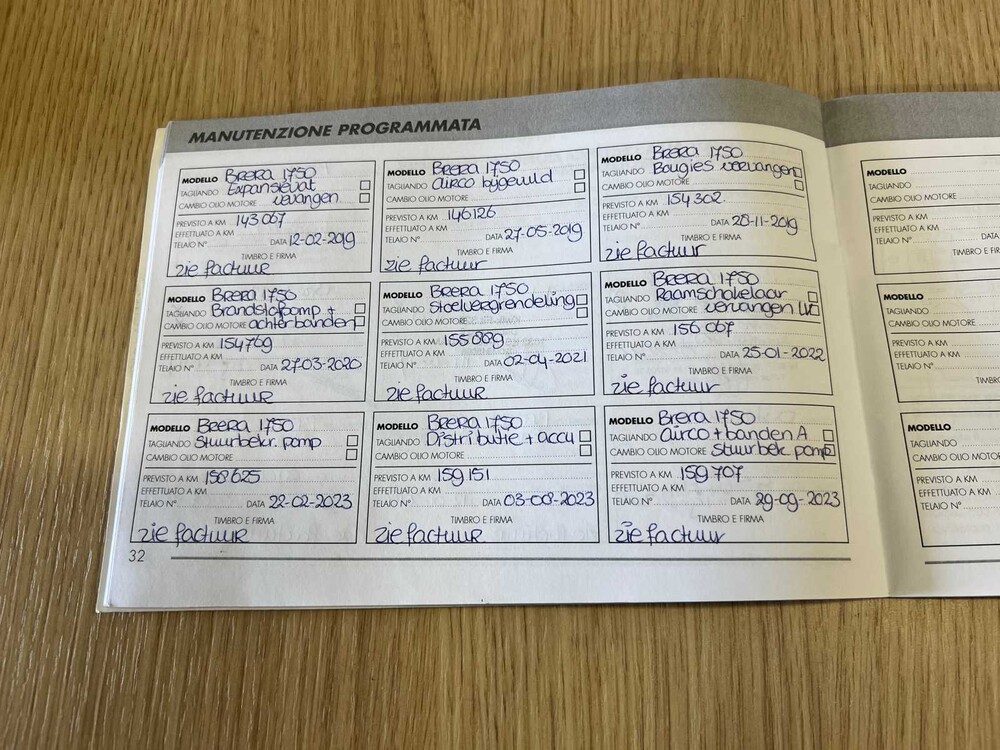 MANUTENZIONE PROGRAMMATA
MODELLO Brera 1750
TAGLIANDO Expansievat
CAMBIO OLIO MOTORE vervangen
PREVISTO A KM 143 067
EFFETTUATO A KM
TELAIO N° DATA 12-02-2019
TIMBRO E FIRMA
zie factuur
MODELLO Brera 1750
TAGLIANDO Airco bygevuld
CAMBIO OLIO MOTORE
PREVISTO A KM 146126
EFFETTUATO A KM
TELAIO N° DATA 27-05-2019
TIMBRO E FIRMA
zie factuur
MODELLO Brera 1750
TAGLIANDO Bougies vervangen
CAMBIO OLIO MOTORE
PREVISTO A KM 154 302
EFFETTUATO A KM
TELAIO N° DATA 28-11-2019
TIMBRO E FIRMA
zie factuur
MODELLO Brera 1750
TAGLIANDO Brandstofpomp +
CAMBIO OLIO MOTORE achterbanden
PREVISTO A KM 154769
EFFETTUATO A KM
TELAIO N° DATA 27-03-2020
TIMBRO E FIRMA
zie factuur
MODELLO Brera 1750
TAGLIANDO Stoelvergrendeling
CAMBIO OLIO MOTORE
PREVISTO A KM 155 889
EFFETTUATO A KM
TELAIO N° DATA 02-04-2021
TIMBRO E FIRMA
zie factuur
MODELLO Brera 1750
TAGLIANDO Raamschakelaar
CAMBIO OLIO MOTORE vervangen LV
PREVISTO A KM 156 067
EFFETTUATO A KM
TELAIO N° DATA 25-01-2022
TIMBRO E FIRMA
zie factuur
MODELLO Brera 1750
TAGLIANDO Stuurbekr. pomp
CAMBIO OLIO MOTORE
PREVISTO A KM 158625
EFFETTUATO A KM
TELAIO N° DATA 22-02-2023
TIMBRO E FIRMA
zie factuur
MODELLO Brera 1750
TAGLIANDO Distributie + accu
CAMBIO OLIO MOTORE
PREVISTO A KM 159 151
EFFETTUATO A KM
TELAIO N° DATA 03-08-2023
TIMBRO E FIRMA
zie factuur
MODELLO Brera 1750
TAGLIANDO Airco + banden A
CAMBIO OLIO MOTORE Stuurbek. pomp
PREVISTO A KM 159 707
EFFETTUATO A KM
TELAIO N° DATA 29-09-2023
TIMBRO E FIRMA
zie factuur
32
MODELLO
TAGLIANDO
CAMBIO OLIO MOTORE
PREVISTO A KM
EFFETTUATO A KM
TELAIO N°
TIMBRO E
MODELLO
TAGLIANDO
CAMBIO OLIO MOTO
PREVISTO A KM
EFFETTUATO A KM
TELAIO N°
TIMBR
MODELLO
TAGLIANDO
CAMBIO OLIO MO
PREVISTO A KM
EFFETTUATO A KM
TELAIO N°